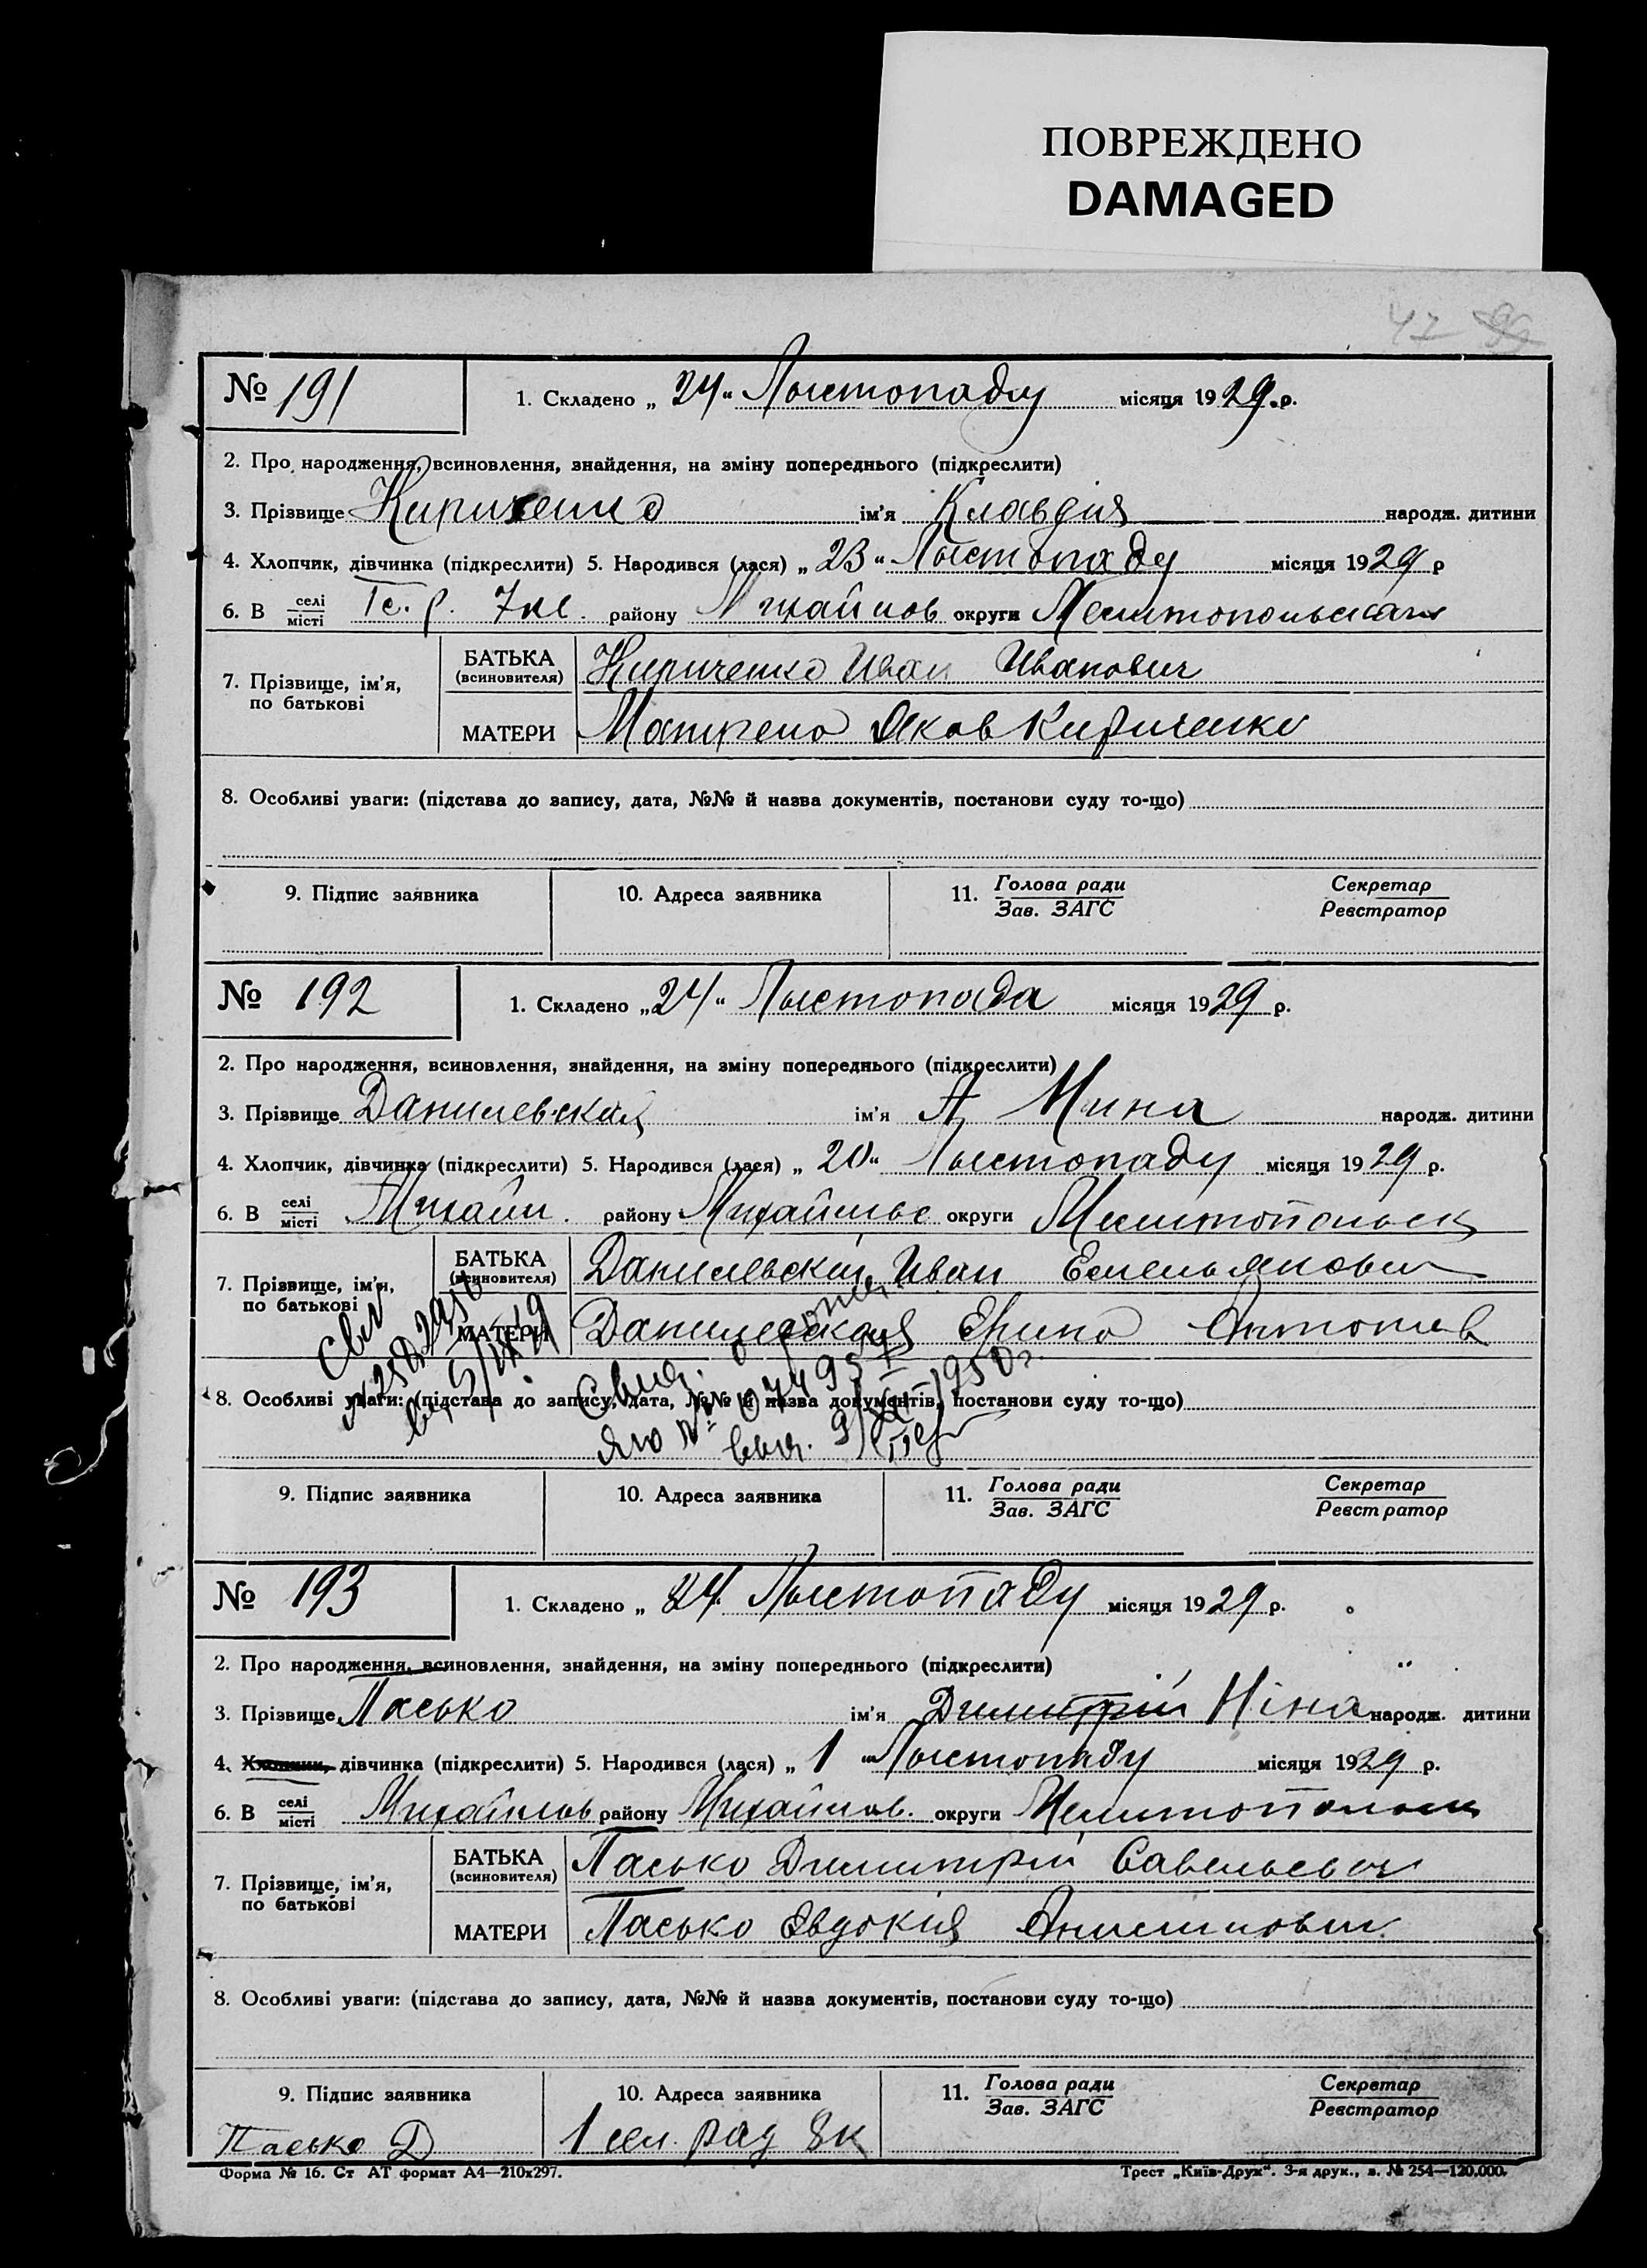 ПОВРЕЖДЕНО
DAMAGED
47
№ 191
1. Складено „ 24 “ Лыстопаду місяця 1929 р.
2. Про народження, всиновлення, знайдення, на зміну попереднього (підкреслити)
3. Прізвище Кириченко ім'я Клавдия народж. дитини
4. Хлопчик, дівчинка (підкреслити) 5. Народився (лася) „ 23 “ Лыстопаду місяця 1929 р
6. В селі/місті Іс. р. 7 кв. району Михайлов округи Мелитопольская
7. Прізвище, ім'я, по батькові
БАТЬКА (всиновителя) Кириченко Иван Иванович
МАТЕРИ Матрена Яков Кириченко
8. Особливі уваги: (підстава до запису, дата, №№ й назва документів, постанови суду то-що)
9. Підпис заявника 10. Адреса заявника 11. Голова ради/Зав. ЗАГС Секретар/Реєстратор
№ 192
1. Складено „ 24 “ Лыстопада місяця 1929 р.
2. Про народження, всиновлення, знайдення, на зміну попереднього (підкреслити)
3. Прізвище Данилевская ім'я А Нина народж. дитини
4. Хлопчик, дівчинка (підкреслити) 5. Народився (лася) „ 20 “ Лыстопаду місяця 1929 р.
6. В селі/місті Михайл. району Михайльвс округи Мелитопольск
7. Прізвище, ім'я, по батькові
БАТЬКА (всиновителя) Данилевский Иван Емельянович
МАТЕРИ Данилевская Ерина Антонов
8. Особливі уваги: (підстава до запису, дата, №№ й назва документів, постанови суду то-що)
9. Підпис заявника 10. Адреса заявника 11. Голова ради/Зав. ЗАГС Секретар/Реєстратор
№ 193
1. Складено „ 24. Лыстопаду місяця 1929 р.
2. Про народження, всиновлення, знайдення, на зміну попереднього (підкреслити)
3. Прізвище Пасько ім'я Димитрій Ніна народж. дитини
4. Хлопчик, дівчинка (підкреслити) 5. Народився (лася) „ 1 “ Лыстопаду місяця 1929 р.
6. В селі/місті Михайлов району Михайлов. округи Мелитопольск
7. Прізвище, ім'я, по батькові
БАТЬКА (всиновителя) Пасько Димитрій Савельевич
МАТЕРИ Пасько Евдокия Анисимовн
8. Особливі уваги: (підстава до запису, дата, №№ й назва документів, постанови суду то-що)
9. Підпис заявника 10. Адреса заявника 11. Голова ради/Зав. ЗАГС Секретар/Реєстратор
Пасько Д 1 сел. рад 8к
Форма № 16. Ст АТ формат А4—210х297. Трест „Київ-Друк“. 3-я друк., з. № 254—120.000.